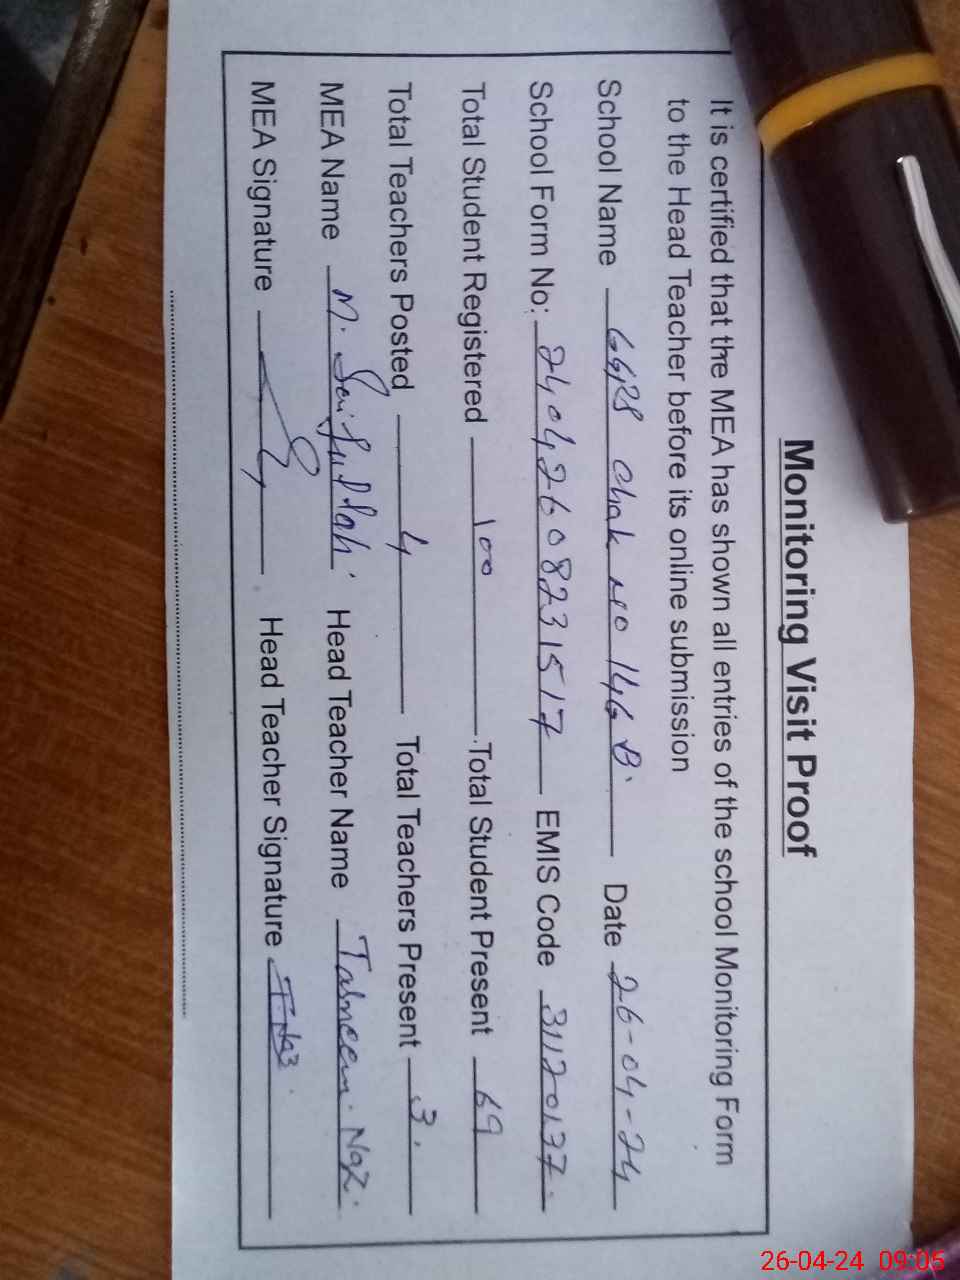 Monitoring Visit Proof
It is certified that the MEA has shown all entries of the school Monitoring Form
to the Head Teacher before its online submission
School Name GGPS Chak No 14G B. Date 26-04-24
School Form No: 24042608231517 EMIS Code 31120137
Total Student Registered 100 Total Student Present 69
Total Teachers Posted 4 Total Teachers Present 3.
MEA Name M. Saifullah. Head Teacher Name Tasneem Naz.
MEA Signature Head Teacher Signature T.Naz.
26-04-24 09:05